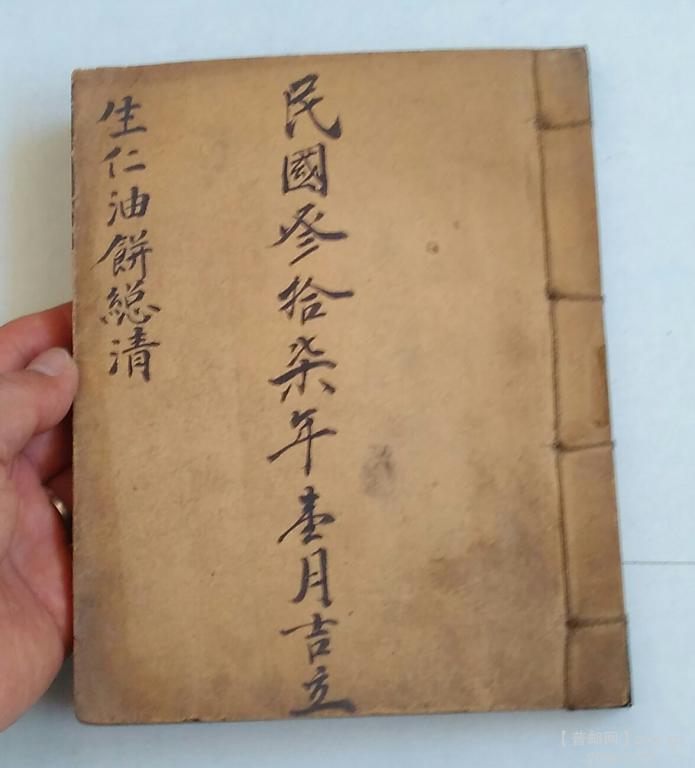 民國叄拾柒年壹月吉立
生仁油餅總清
【普邮网】